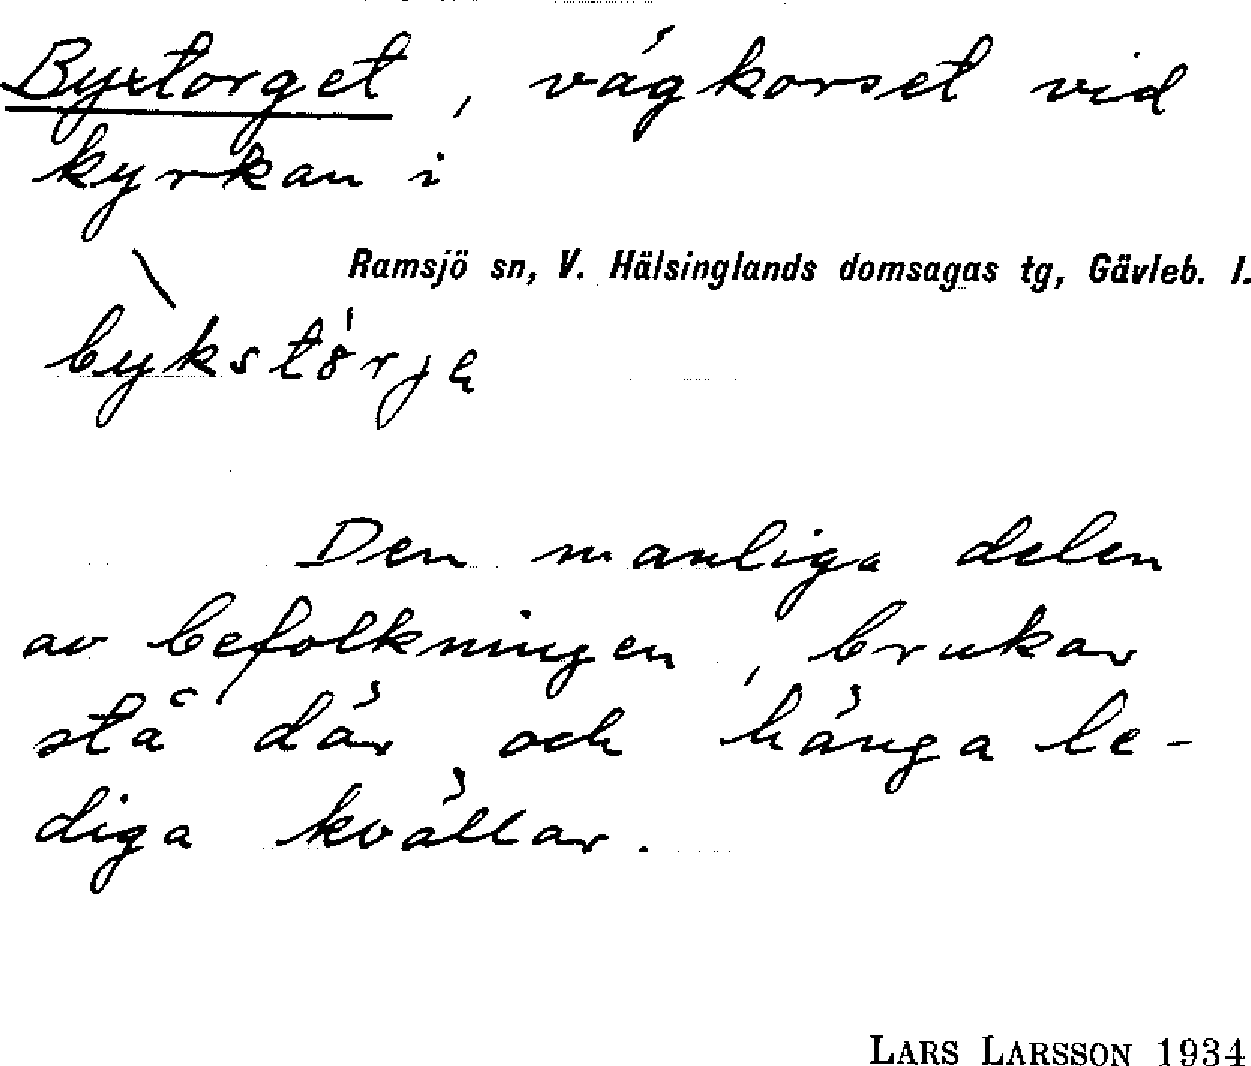 Byxtorget, vägkorset vid
kyrkan i
Ramsjö sn, V. Hälsinglands domsagas tg, Gävleb. l.
Den manliga delen
av befolkningen, brukar
stå där och hänga le-
diga kvällar.
LARS LARSSON 1934